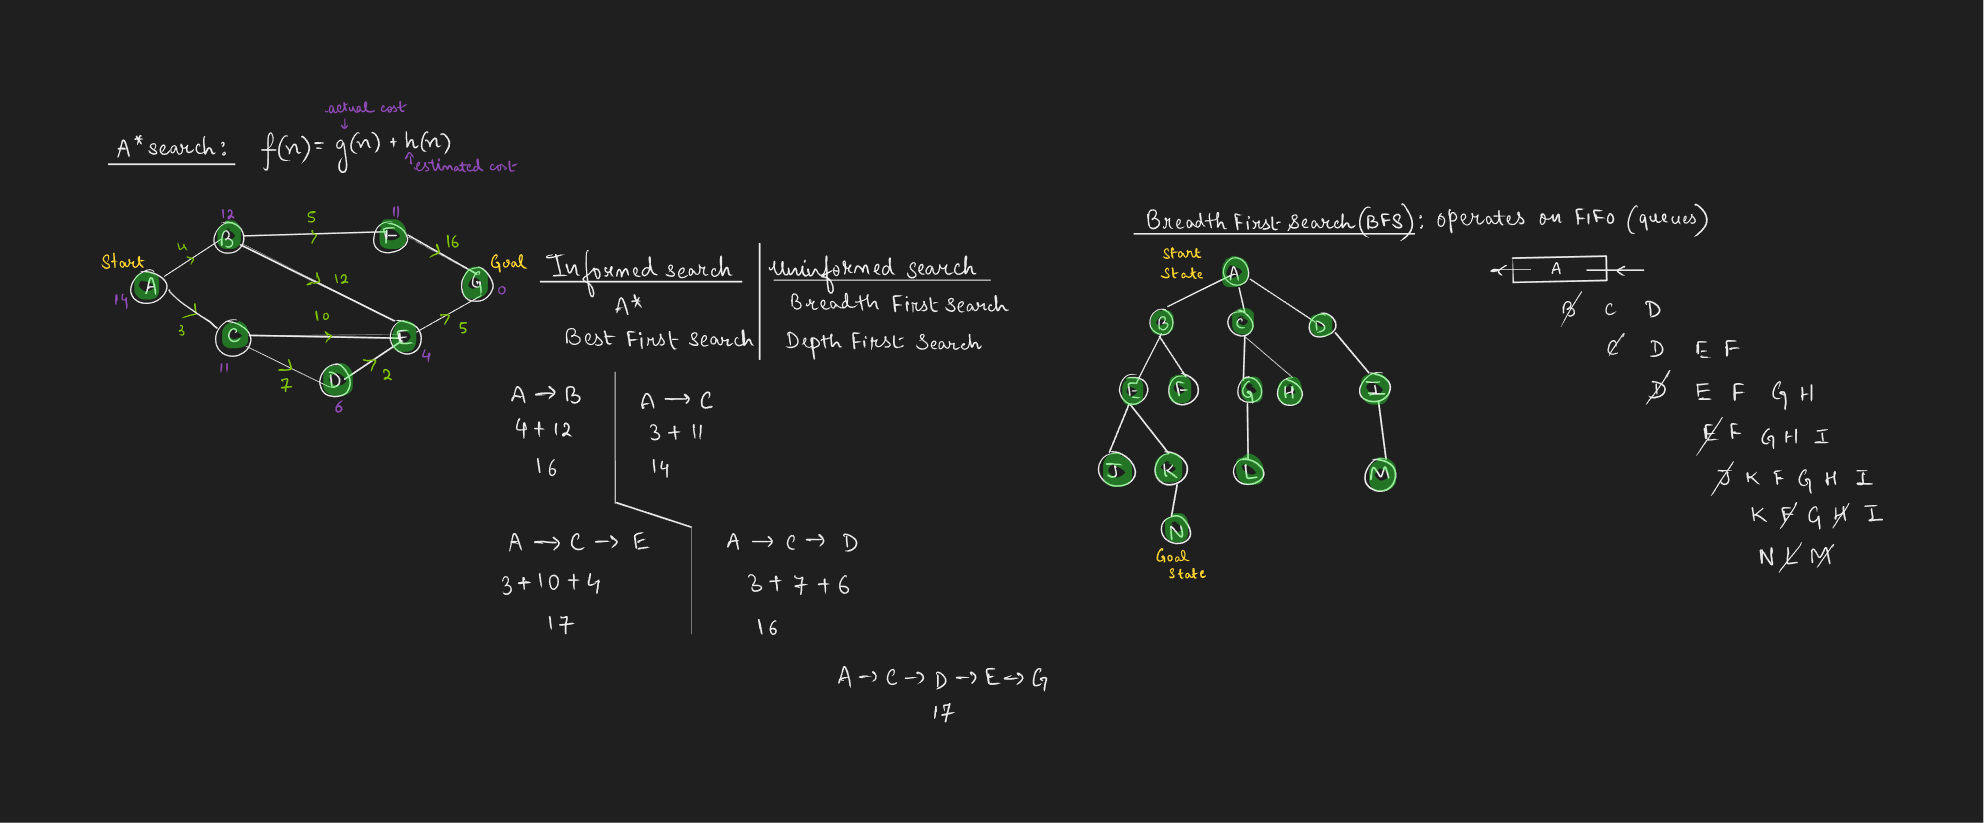 actual cost
↓
A* search: f(n) = g(n) + h(n)
↑ estimated cost
12 5 11
B F
4 16
Start Goal
A 12 G
14 0
3 10 5
C E
11 4
7 D 2
6
Informed search
A*
Best First Search
Uninformed search
Breadth First Search
Depth First Search
A → B
4 + 12
16
A → C
3 + 11
14
A → C → E
3 + 10 + 4
17
A → C → D
3 + 7 + 6
16
A → C → D → E → G
17
Breadth First Search (BFS): operates on FIFO (queues)
Start
State
A
B C D
E F G H I
J K L M
N
Goal
State
A
B C D
C D E F
D E F G H
E F G H I
J K F G H I
K F G H I
N L M